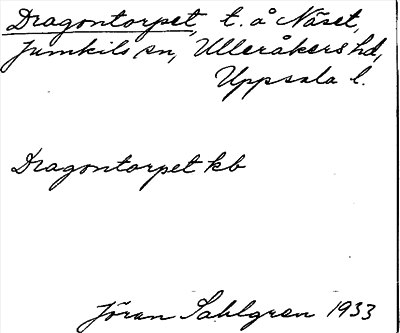 Dragontorpet, t. å Näset,
Jumkils sn, Ulleråkers hd,
Uppsala l.
Dragontorpet kb
Jöran Sahlgren 1933